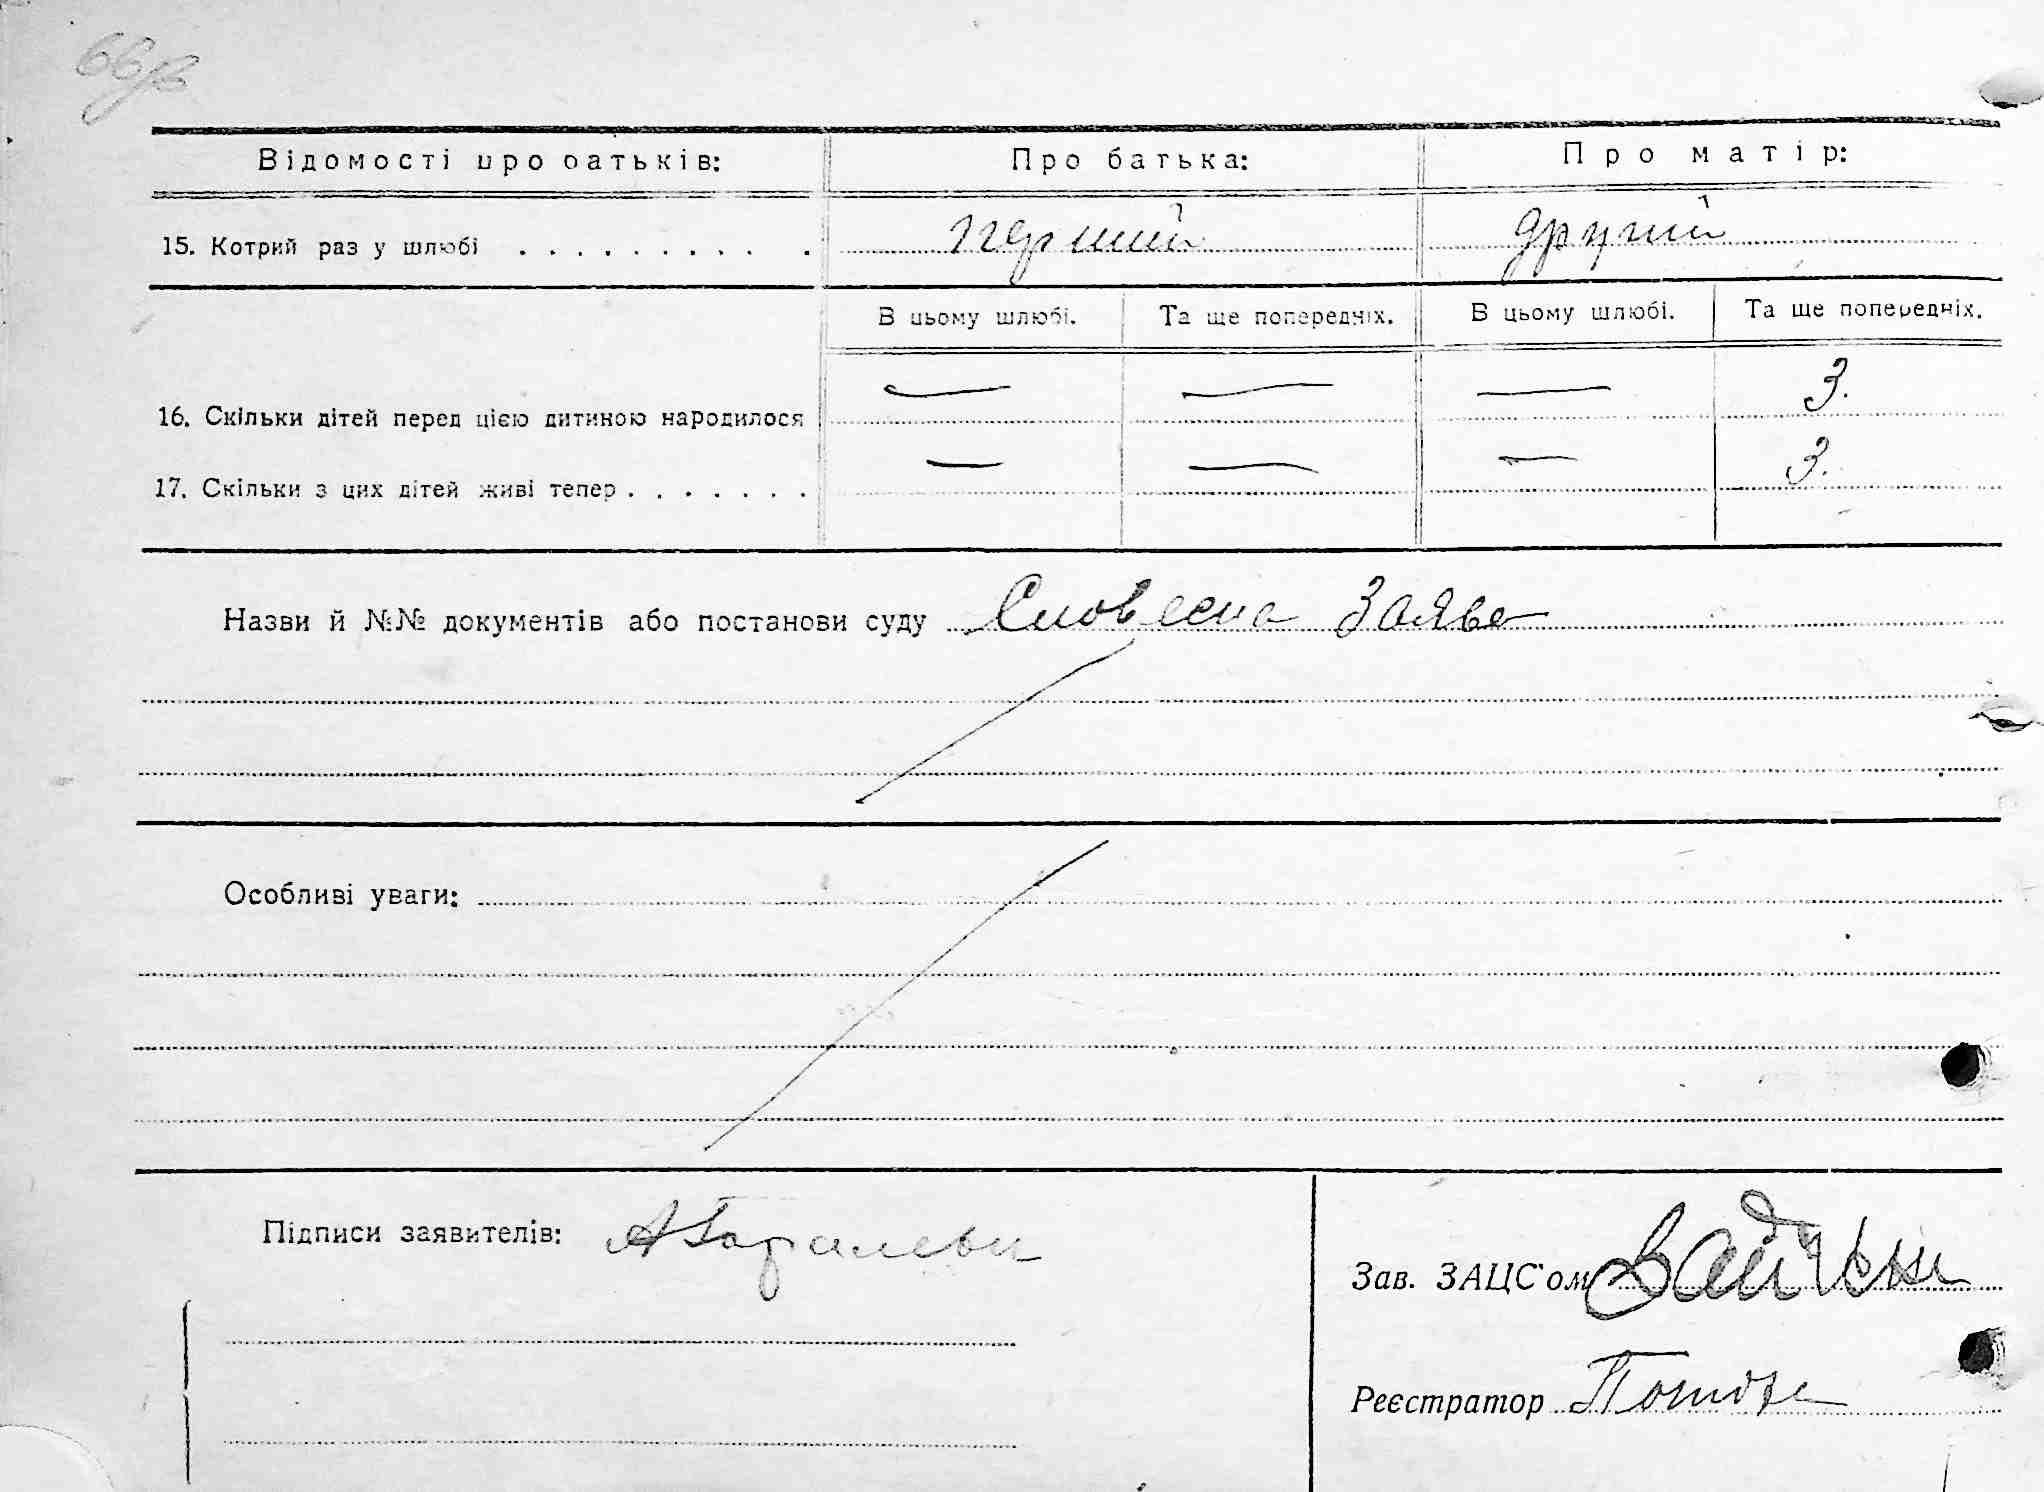 Відомості про батьків: Про батька: Про матір:
15. Котрий раз у шлюбі . . . . . . . . . . перший другий
В цьому шлюбі. Та ще попередніх. В цьому шлюбі. Та ще попередніх.
16. Скільки дітей перед цією дитиною народилося — — — 3.
17. Скільки з цих дітей живі тепер . . . . . . . — — — 3.
Назви й №№ документів або постанови суду Словесна Заява
Особливі уваги:
Підписи заявителів:
Зав. ЗАЦС'ом
Реєстратор